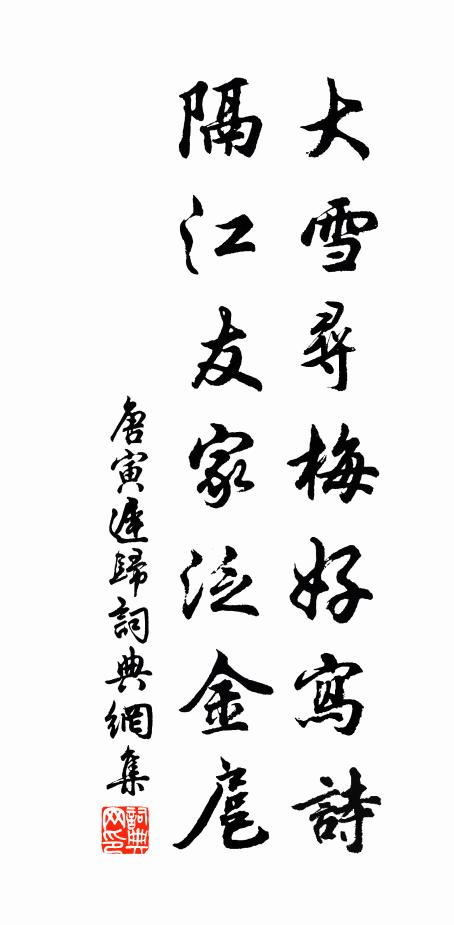 大雪尋梅好寫詩
隔江友家泛金巵
唐寅遲歸詞典網集
詞典
网印